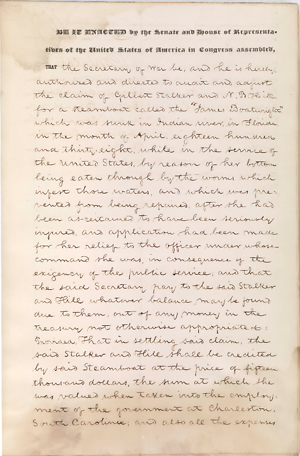 BE IT ENACTED by the Senate and House of Representa-
tives of the United States of America in Congress assembled,
THAT the Secretary of War be, and he is hereby
authorized and directed to audit and adjust
the claim of Gellert Stalker and N. B. Hill
for a steamboat called the "James Boatwright"
which was sunk in Indian river, in Florida
in the month of April, eighteen hundred
and thirty-eight, while in the service of
the United States, by reason of her bottom
being eaten through by the worms which
infest those waters, and which was pre-
vented from being repaired, after she had
been ascertained to have been seriously
injured, and application had been made
for her relief to the officer under whose
command she was, in consequence of the
exigency of the public service; and that
the said Secretary pay to the said Stalker
and Hill whatever balance may be found
due to them, out of any money in the
treasury not otherwise appropriated:
Provided That in settling said claim, the
said Stalker and Hill, shall be credited
by said Steamboat at the price of fifteen
thousand dollars, the sum at which she
was valued when taken into the employ-
ment of the government at Charleston,
South Carolina; and also all the expenses